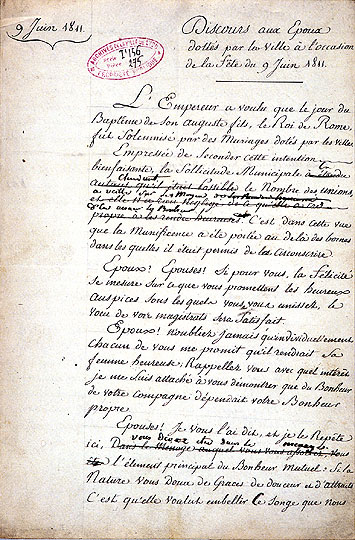 9 Juin 1811.
Discours aux Epoux
dotés par la Ville à l'occasion
de la Fête du 9 Juin 1811.
ARCHIVES
L'Empereur a voulu que le jour du
Baptême de son auguste fils, le Roi de Rome,
fut Solemnisé par des Mariages dotés par les Villes
Empressée de Seconder cette intention
bienfaisante, la Sollicitude Municipale
autant qu'il était possible le Nombre des unions,
propre à les rendre C'est dans cette vue
que la Munificence a été portée au delà des bornes
dans lesquelles il était permis de les circonscrire.
Epoux! Epouses! Si pour vous, la félicité
se mesure sur ce que vous promettent les heureux
auspices sous lesquels vous vous unissez, le
voeu de vos magistrats sera satisfait.
Epoux! n'oubliez jamais qu'individuellement
chacun de vous me promit qu'il rendrait sa
femme heureuse. Rappellez vous avec quel intérêt
je me suis attaché à vous démontrer que du Bonheur
de votre compagne dépendait votre Bonheur
propre.
Epouses! Je vous l'ai dit, et je le Répète
vous devez être dans le ménage
ici, Dans le Ménage auquel vous vous
l'élément principal du Bonheur mutuel: Si la
Nature vous Doua de Graces de douceur et d'attraits
C'est qu'elle voulut embellir Ce Songe que Nous